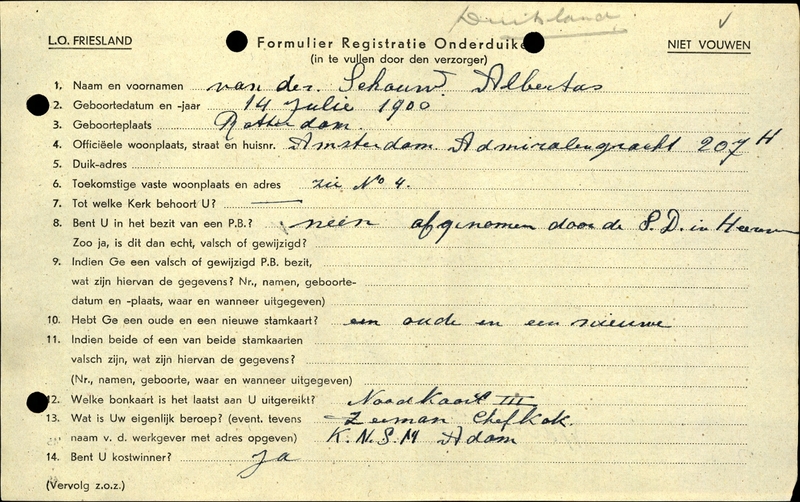 Duitsland
L.O. FRIESLAND
Formulier Registratie Onderduike
NIET VOUWEN
(in te vullen door den verzorger)
1. Naam en voornamen van der. Schouw. Albertus
2. Geboortedatum en -jaar 14 Julie 1900
3. Geboorteplaats Rotterdam.
4. Officiëele woonplaats, straat en huisnr. Amsterdam Admiralengracht 207 H
5. Duik-adres
6. Toekomstige vaste woonplaats en adres zie No 4.
7. Tot welke Kerk behoort U? —
8. Bent U in het bezit van een P.B.? neen afgenomen door de S.D. in Heeren
Zoo ja, is dit dan echt, valsch of gewijzigd?
9. Indien Ge een valsch of gewijzigd P.B. bezit,
wat zijn hiervan de gegevens? Nr., namen, geboorte-
datum en -plaats, waar en wanneer uitgegeven)
10. Hebt Ge een oude en een nieuwe stamkaart? een oude en een nieuwe
11. Indien beide of een van beide stamkaarten
valsch zijn, wat zijn hiervan de gegevens?
(Nr., namen, geboorte, waar en wanneer uitgegeven)
12. Welke bonkaart is het laatst aan U uitgereikt? Noodkaart III
13. Wat is Uw eigenlijk beroep? (event. tevens Zeeman Chefkok.
naam v. d. werkgever met adres opgeven) K.N.S.M Adam
14. Bent U kostwinner? Ja
(Vervolg z.o.z.)